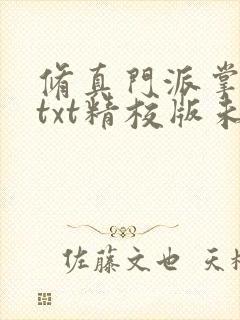 脩真門派掌
txt精校版未
佐藤文也 天